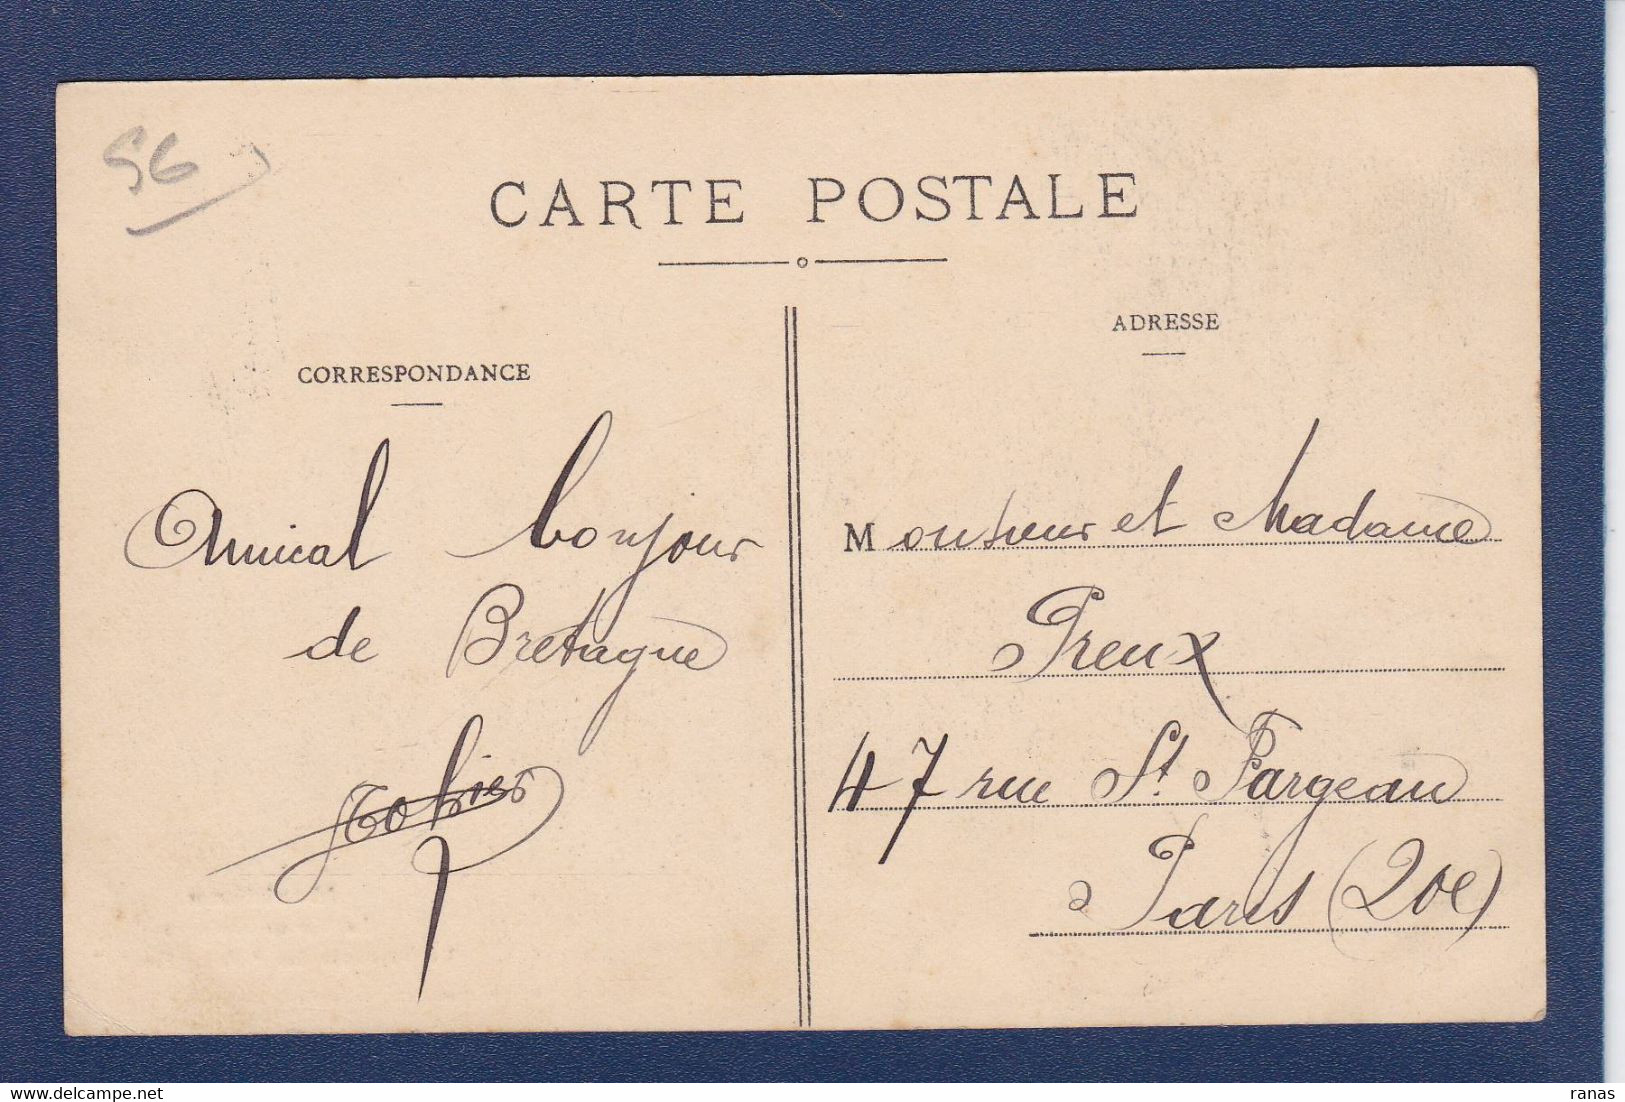 56
CARTE POSTALE
CORRESPONDANCE
Amical bonjour
de Bretagne
ADRESSE
Monsieur et Madame
Preux
47 rue St. Fargeau
à Paris (20e)
ranas
delcampe.net